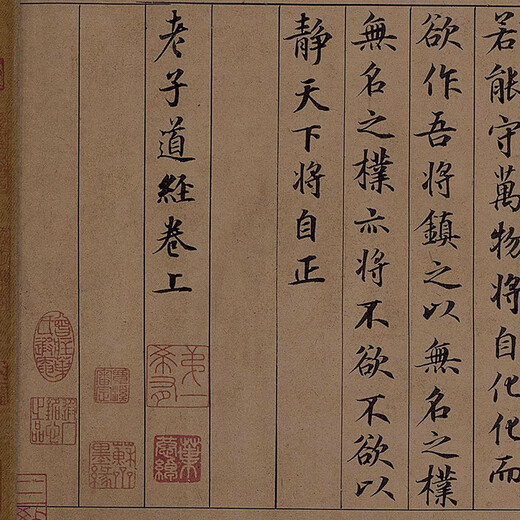 若能守萬物將自化化而
欲作吾將鎮之以無名之樸
無名之樸亦將不欲不欲以
静天下將自正
老子道經卷上